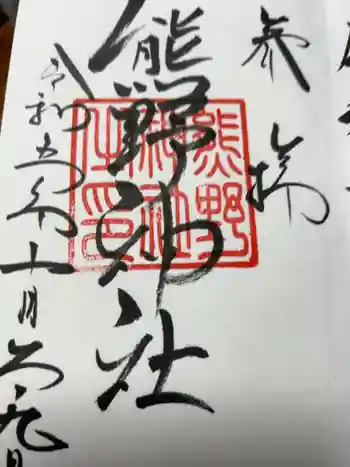 参拝
熊野神社
熊野神社之印
令和五年十月六九日